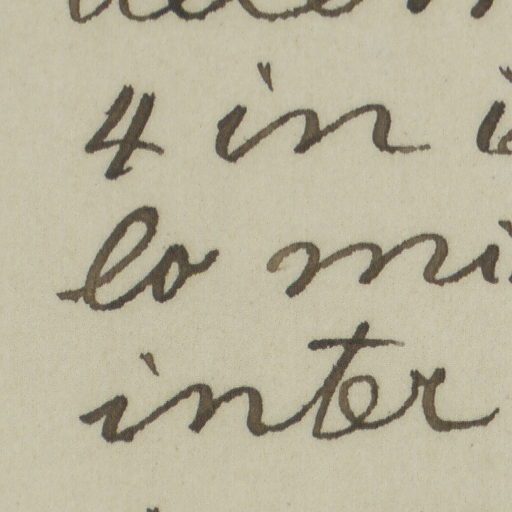 4 in
lo mi
inter